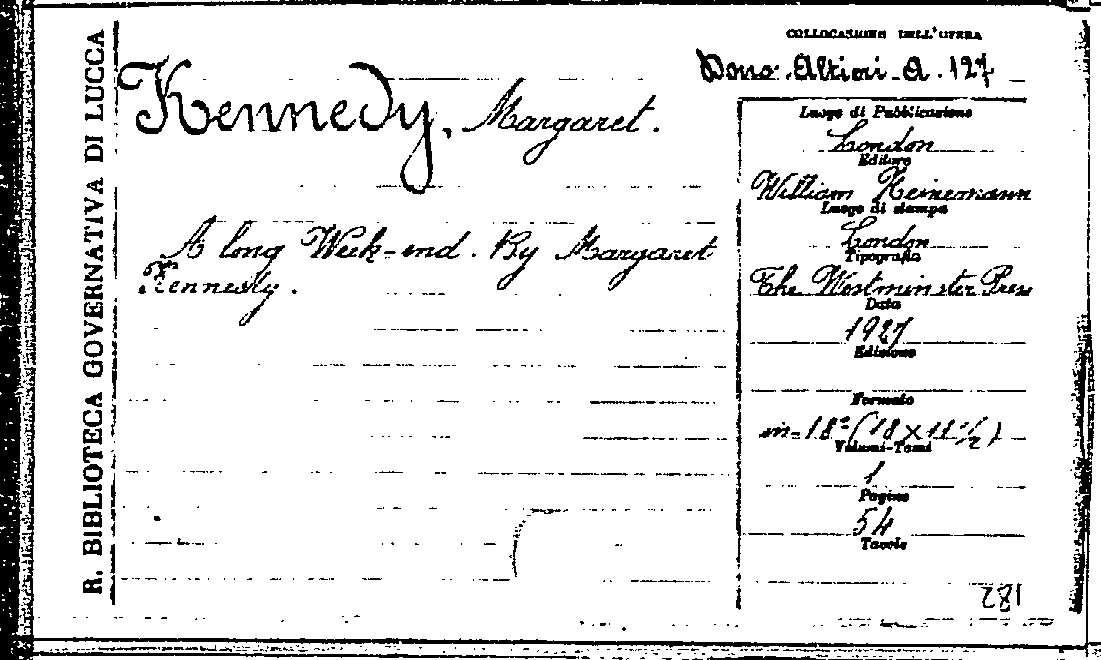 R. BIBLIOTECA GOVERNATIVA DI LUCCA
COLLOCAZIONE DELL'OPERA
Dono Altieri A. 127
Kennedy, Margaret.
A long Week-end. By Margaret
Kennedy.
Luogo di Pubblicazione
London
Editore
William Heinemann
Luogo di stampa
London
Tipografia
The Westminster Press
Data
1927
Edizione
Formato
in-18° (18 x 11 1/2)
Volumi-Tomi
1
Pagine
54
Tavole
182